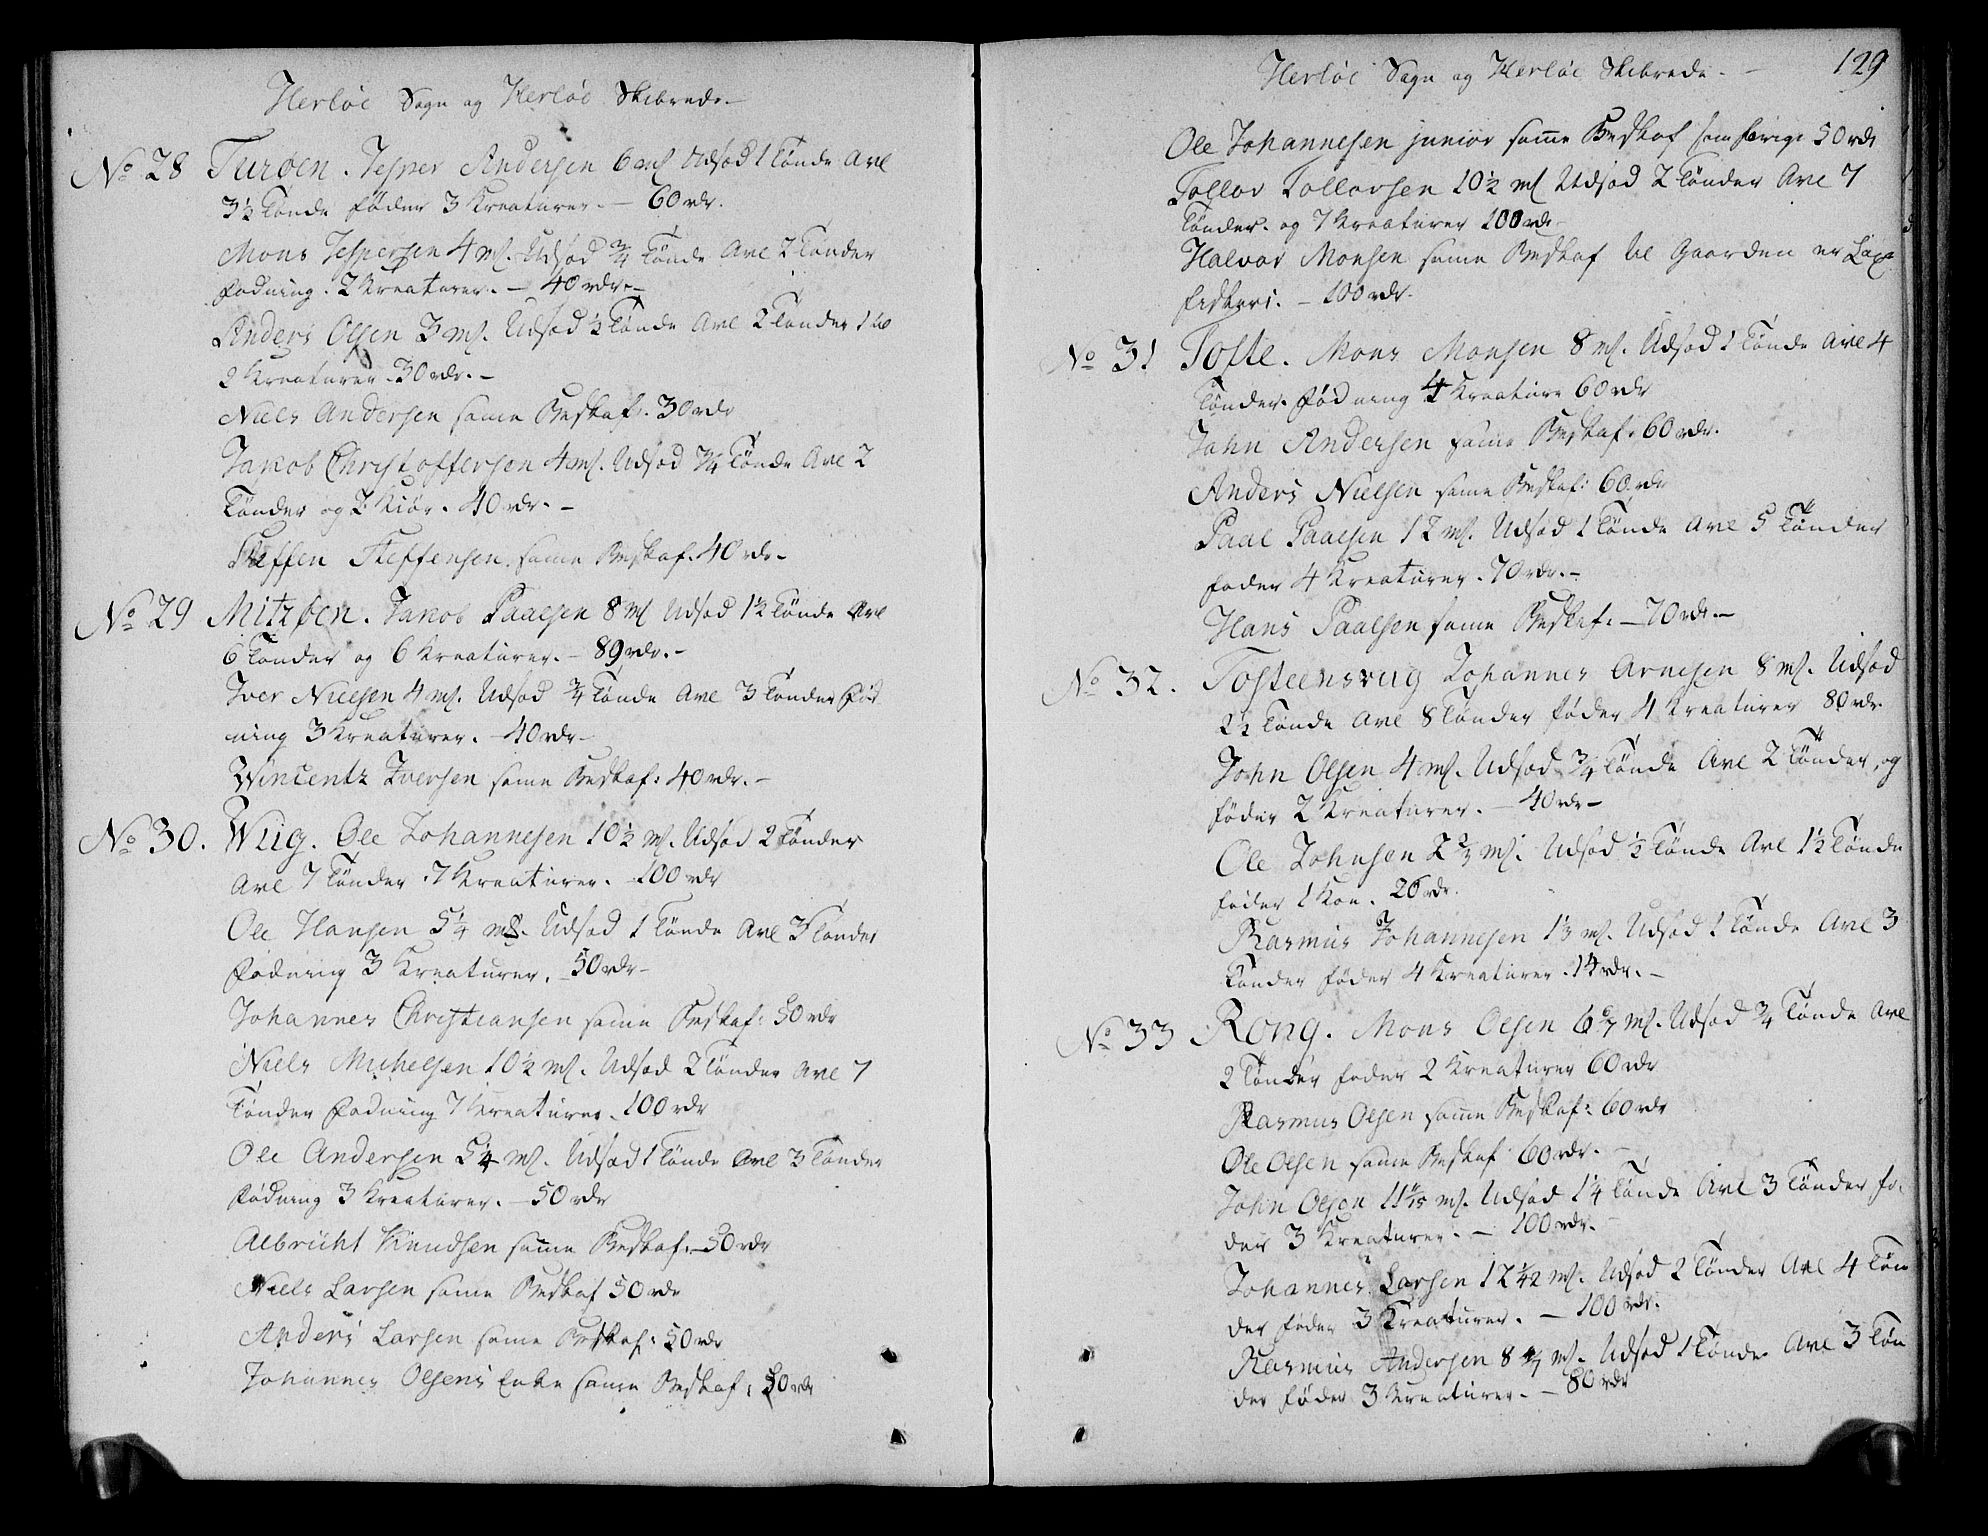 Herlöe Sogn og Herlöe Skibrede.—
No 28 Turöen. Jesper Andersen 6 mk Udsæd 1 Tönde Avl
3½ Tönde föder 3 Kreaturer. — 60 rdr.
Mons Jespersen 4 mk. Udsæd ¾ Tönde Avl 2 Tönder
Födning. 2 Kreaturer. — 40 rdr.—
Anders Olsen 3 mk. Udsæd ½ Tönde Avl 2 Tönder
2 Kreaturer. 30 rdr.—
Niels Andersen same Beskaf: 30 rdr
Jakob Christoffersen 4 mk. Udsæd ¾ Tönde Avl 2
Tönder og 2 Kiör. 40 rdr.—
Steffen Steffensen. same Beskaf. 40 rdr—
No 29 Mitzöen. Jakob Paalsen 8 mk Udsæd 1½ Tönde Avl
6 Tönder og 6 Kreaturer. — 89 rdr.—
Iver Nielsen 4 mk. Udsæd ¾ Tönde Avl 3 Tönder Föd
ning 3 Kreaturer. — 40 rdr—
Wincentz Iversen same Beskaf: 40 rdr.—
No 30. Wiig. Ole Johannesen 10½ mk. Udsæd 2 Tönder
Avl 7 Tönder. 7 Kreaturer. — 100 rdr
Ole Hansen 5¼ mk. Udsæd 1 Tönde Avl 3 Tönder
Födning 3 Kreaturer. 50 rdr—
Johannes Christiansen same Beskaf: 50 rdr
Niels Michelsen 10½ mk. Udsæd 2 Tönder Avl 7
Tönder Födning 7 Kreaturer. 100 rdr
Ole Andersen 5¼ mk. Udsæd 1 Tönde Avl 3 Tönder
Födning 3 Kreaturer. — 50 rdr
Albricht Knudsen same Beskaf: 50 rdr
Niels Larsen same Beskaf 50 rdr
Anders Larsen same Beskaf: 50 rdr
Johannes Olsens Enke same Beskaf: 50 rdr
Herlöe Sogn og Herlöe Skibrede. — 129
Ole Johannesen junior same Beskaf som forige 50 rdr
Tollov Tollovsen 10½ mk Udsæd 2 Tönder Avl 7
Tönder. og 7 Kreaturer 100 rdr
Halvor Monsen same Beskaf til Gaarden er Laxe
fiskeri. — 100 rdr.
No 31 Tofte. Mons Monsen 8 mk. Udsæd 1 Tönde Avl 4
Tönder. Födning 4 Kreature 60 rdr
John Andersen same Beskaf: 60 rdr.
Anders Nielsen same Beskaf: 60 rdr
Paal Paalsen 12 mk. Udsæd 1 Tönde Avl 5 Tönder
föder 4 Kreaturer. 70 rdr.—
Hans Paalsen same Beskaf. — 70 rdr.—
No 32. Tosteensviig Johannes Arnesen 8 mk. Udsæd
2½ Tönde Avl 8 Tönder föder 4 Kreaturer 80 rdr.
John Olsen 4 mk. Udsæd ¾ Tönde Avl 2 Tönder, og
föder 2 Kreaturer. — 40 rdr—
Ole Johnsen 2⅔ mk. Udsæd ½ Tönde Avl 1½ Tönde
föder 1 Koe. 26 rdr.
Rasmus Johannesen 1⅓ mk. Udsæd 1 Tönde Avl 3
Tönder föder 4 Kreaturer. 14 rdr.—
No 33 Rong. Mons Olsen 6 6/7 mk. Udsæd ¾ Tönde Avl
2 Tönder föder 2 Kreaturer 60 rdr
Rasmus Olsen same Beskaf: 60 rdr
Ole Olsen same Beskaf 60 rdr.
John Olsen 11 mk. Udsæd 1¼ Tönde Avl 3 Tönder fö-
der 3 Kreaturer. — 100 rdr.
Johannes Larsen 12 1/42 mk. Udsæd 2 Tönder Avl 4 Tön
der föder 3 Kreaturer. — 100 rdr.
Rasmus Andersen 8 4/7 mk. Udsæd 1 Tönde Avl 3 Tön
der föder 3 Kreaturer. — 80 rdr